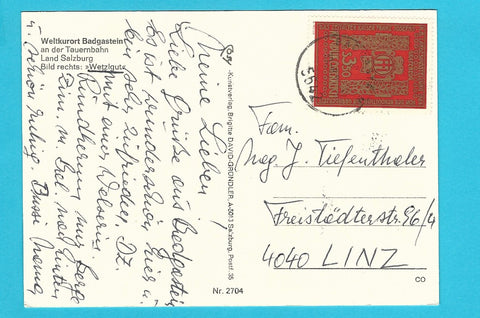 Weltkurort Badgastein
an der Tauernbahn
Land Salzburg
Bild rechts: »Wetzlgut«
Meine Lieben!
Liebe Grüße aus Badgastein
Es ist wunderschön hier u.
bin sehr zufrieden. DZ.
mit einer
Rundherum nur Berge
Zim. m. Bel nach hinten
u. schön ruhig. Bussi Mama
-Kunstverlag, Brigitte DAVID-GRÜNDLER, A-5013 Salzburg, Postf. 35
Nr. 2704
S 3.50
Fam.
Mag. J. Tiefenthaler
Freistädterstr. 96/4
4040 LINZ
CO